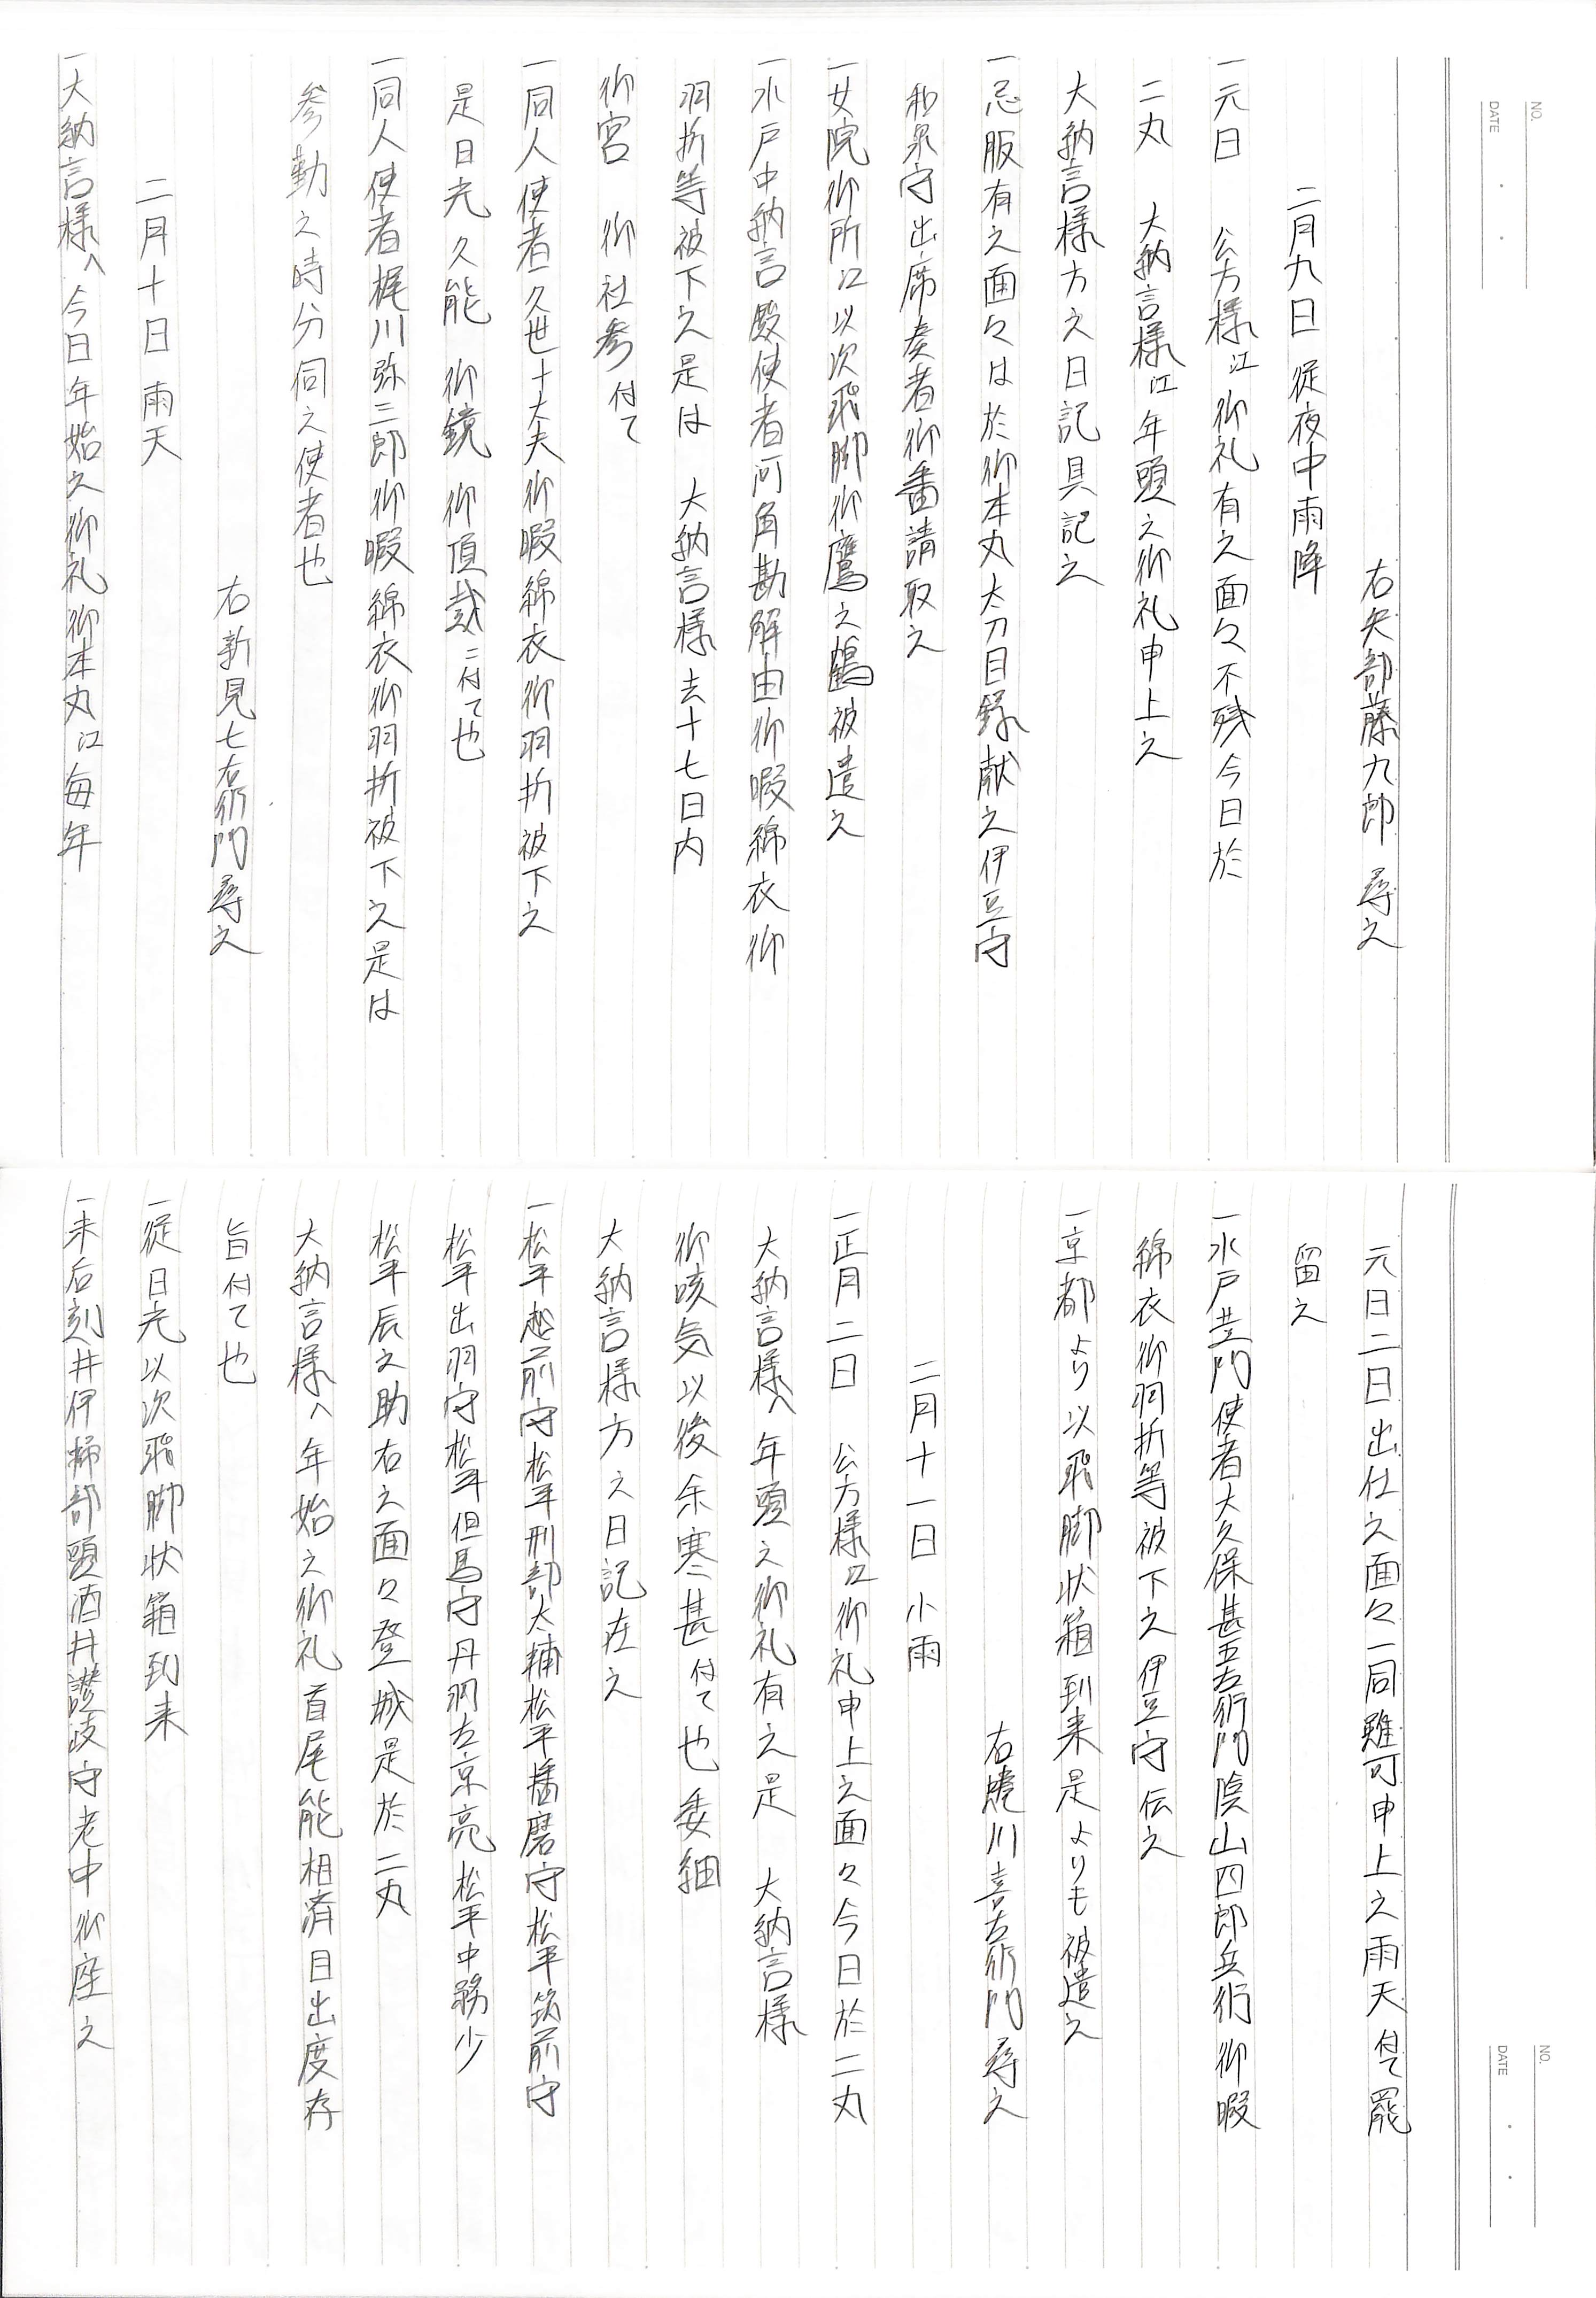 NO.
DATE
右矢部藤九郎 尋之
二月九日 従夜中雨降
一元日 公方様江御礼有之面々不残今日於
二丸 大納言様江年頭之御礼申上之
大納言様方之日記具記之
一忌服有之面々は於御本丸太刀目録献之伊豆守
和泉守出席奏者御番請取之
一女院御所江以次飛脚御鷹之鶴被遣之
一水戸中納言殿使者河角勘解由御暇綿衣御
羽折等被下之是は 大納言様去十七日内
御宮 御社参付て
一同人使者久世十太夫御暇綿衣御羽折被下之
是日光久能 御鏡 御頂戴ニ付て也
一同人使者梶川弥三郎御暇綿衣御羽折被下之是は
参勤之時分伺之使者也
右新見七右衛門尋之
二月十日 雨天
一大納言様へ今日年始之御礼御本丸江毎年
NO.
DATE
元日二日出仕之面々一同雖可申上之雨天付て罷
留之
一水戸黄門使者大久保甚五右衛門陰山四郎兵衛御暇
綿衣御羽折等被下之伊豆守伝之
一京都より以飛脚状箱到来是よりも被遣之
右蜷川喜右衛門尋之
二月十一日 小雨
一正月二日 公方様江御礼申上之面々今日於二丸
大納言様へ年頭之御礼有之是 大納言様
御咳気以後余寒甚付て也委細
大納言様方之日記在之
一松平越前守松平刑部太輔松平播磨守松平筑前守
松平出羽守松平但馬守丹羽左京亮松平中務少
松平辰之助右之面々登城是於二丸
大納言様へ年始之御礼首尾能相済目出度存
旨付て也
一従日光以次飛脚状箱到来
一未后刻井伊掃部頭酒井讃岐守老中御座之